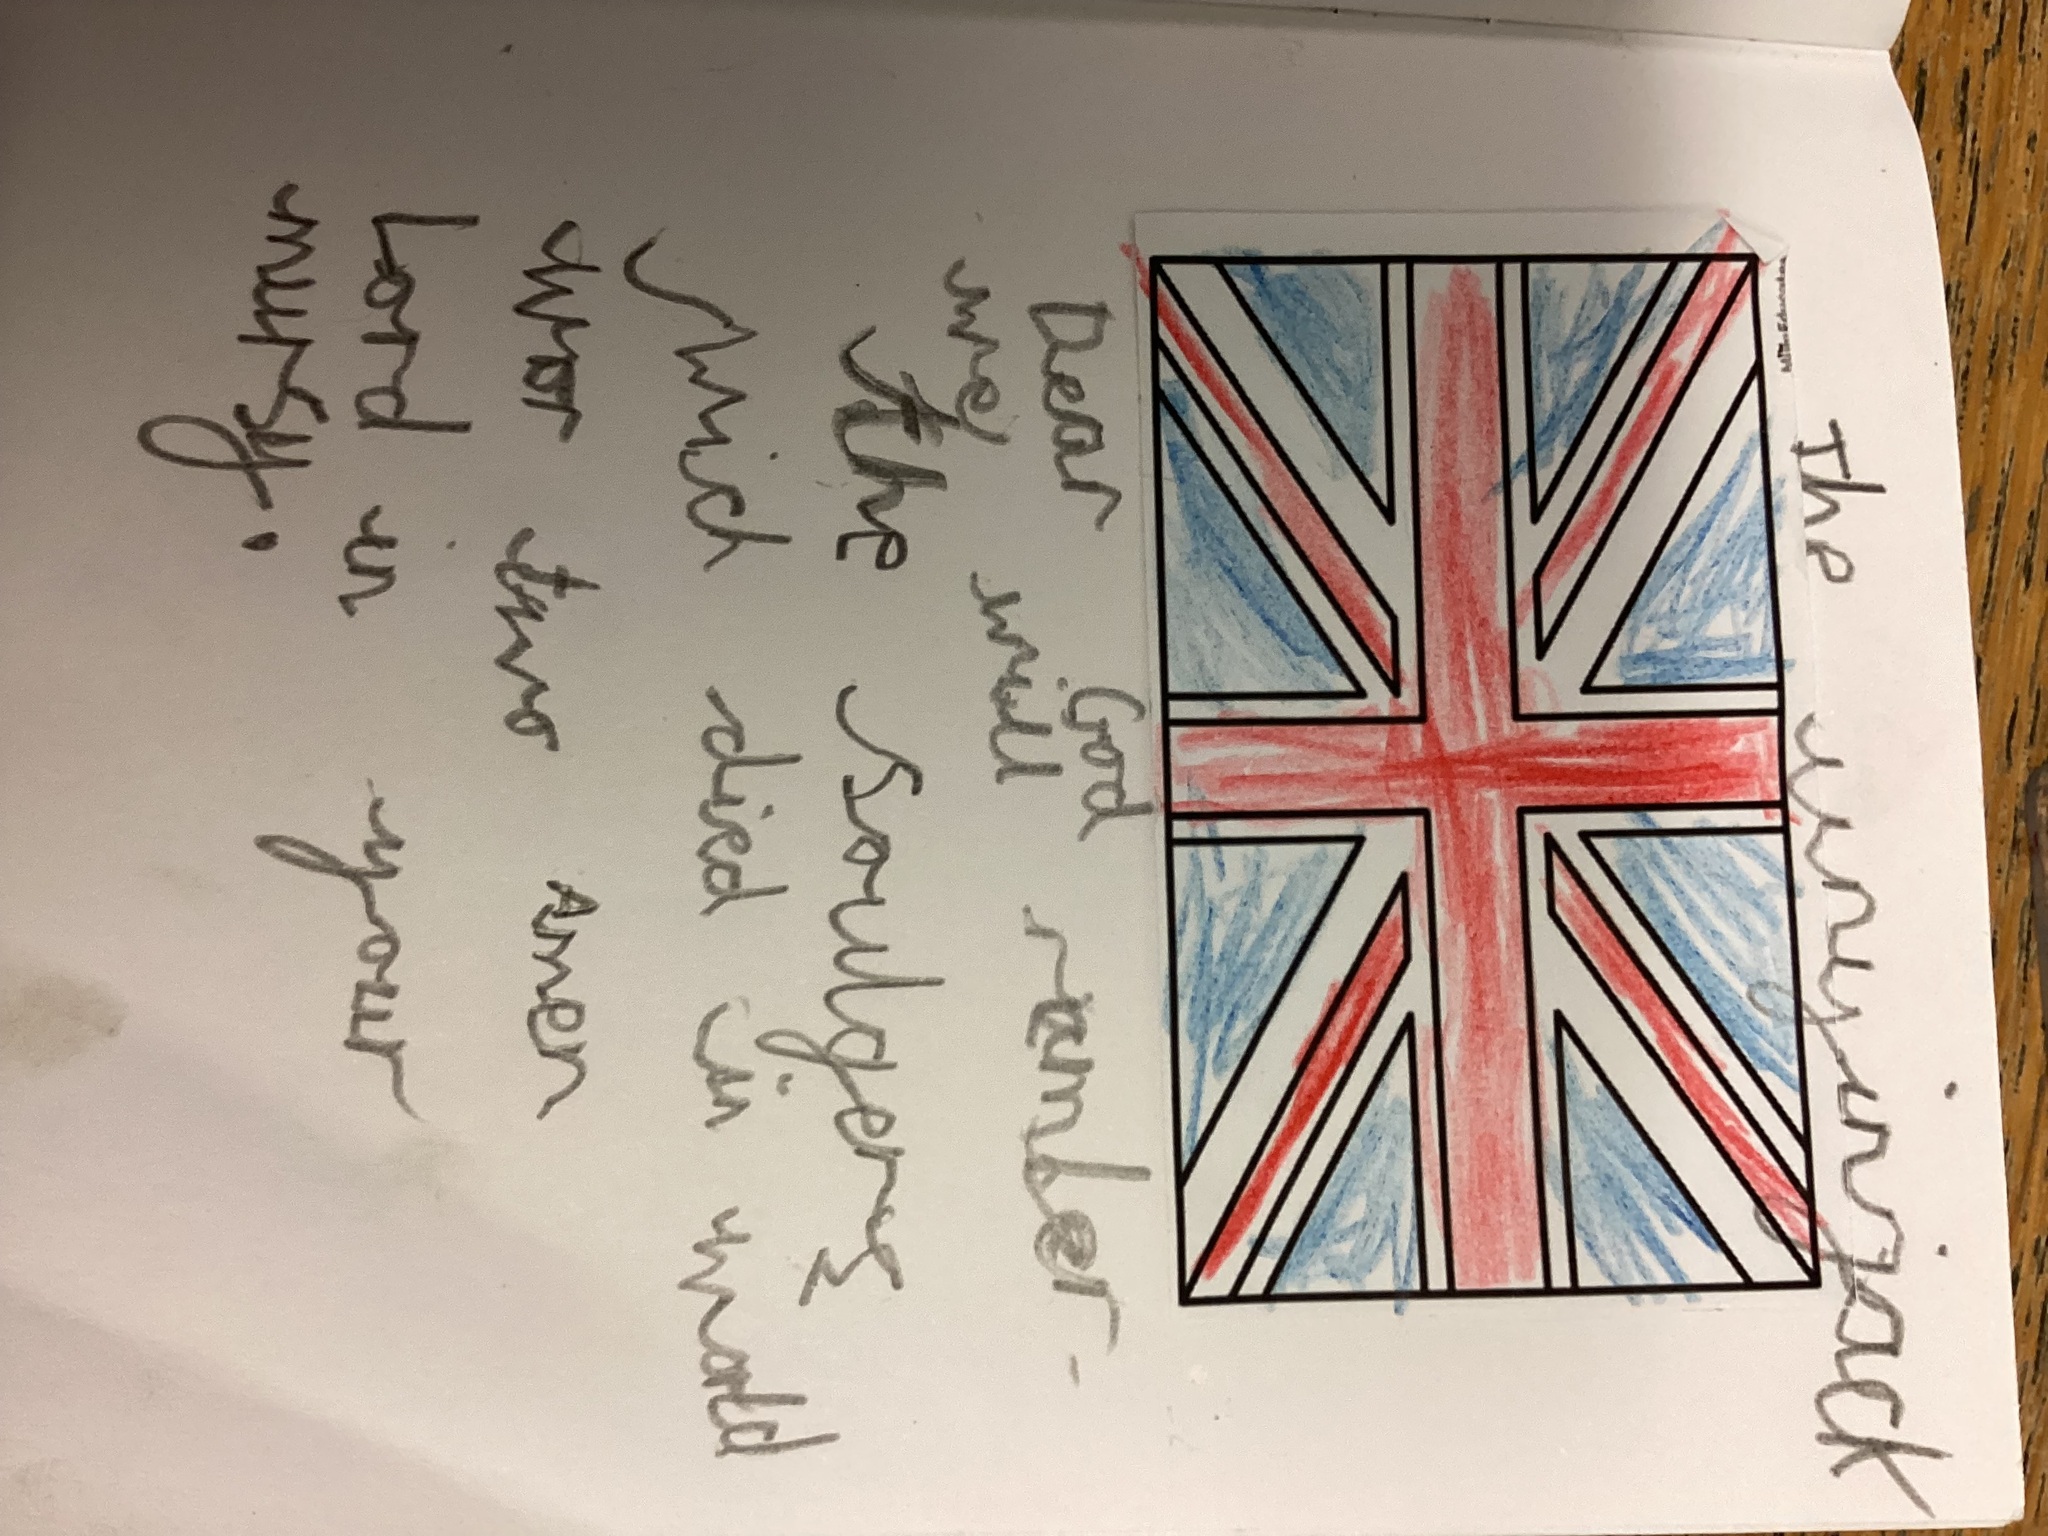 The uinyin jack
Dear God
we will rember
the souldgers
wich died in world
wor two Amen
Lord in your
mursy.